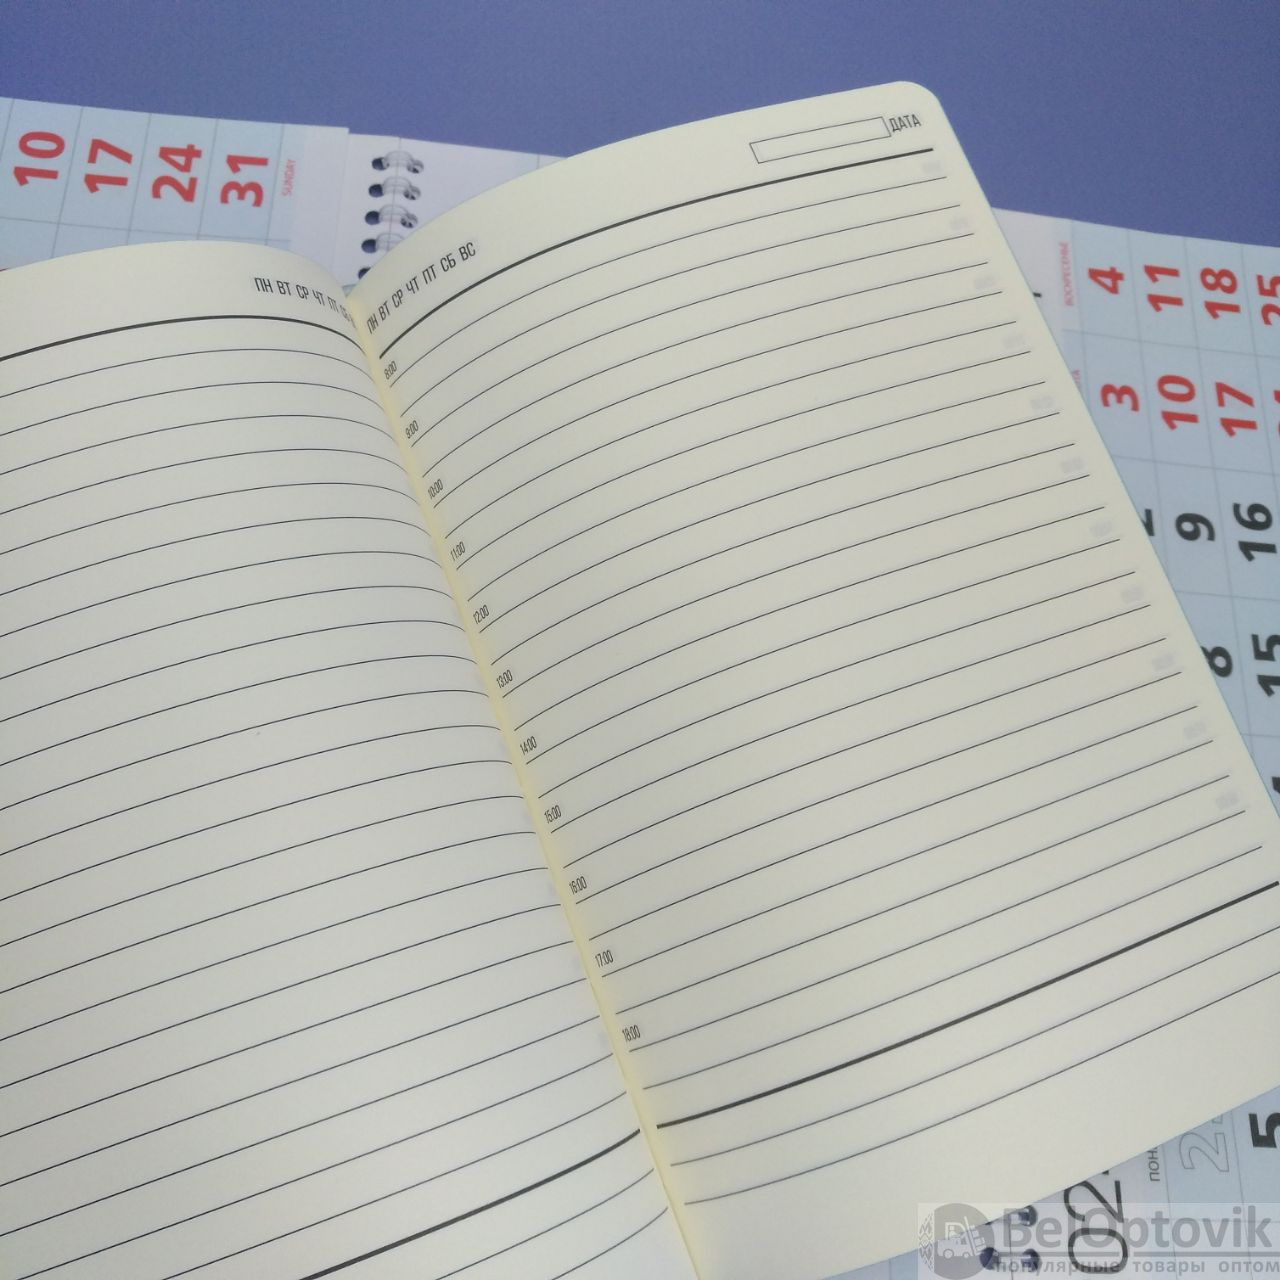 10
17
24
31
SUNDAY
ПН ВТ СР ЧТ ПТ СБ
ПН ВТ СР ЧТ ПТ СБ ВС
ДАТА
8:00
9:00
10:00
11:00
12:00
13:00
14:00
15:00
16:00
17:00
18:00
ВОСКРЕСЕНЬЕ
4 11 18 25
3 10 17
2 9 16
8 15
5
BelOptovik
популярные товары оптом